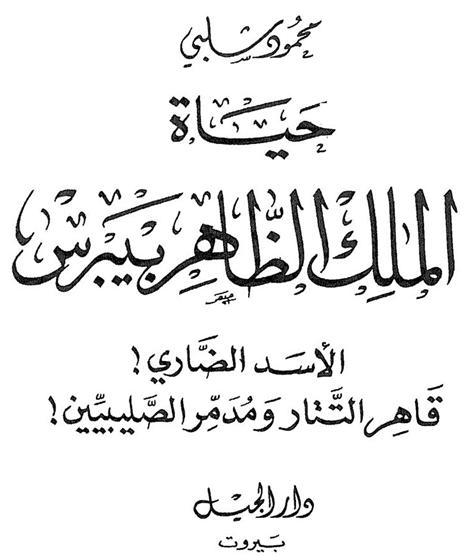 محمود شلبي
حَيَاة
المَلِك الظَّاهِر بيَبرس
الأسَد الضَّاري !
قَاهِر التَّتار وَمُدَمِّر الصَّليبيِّين !
دار الجيل
بَيروت